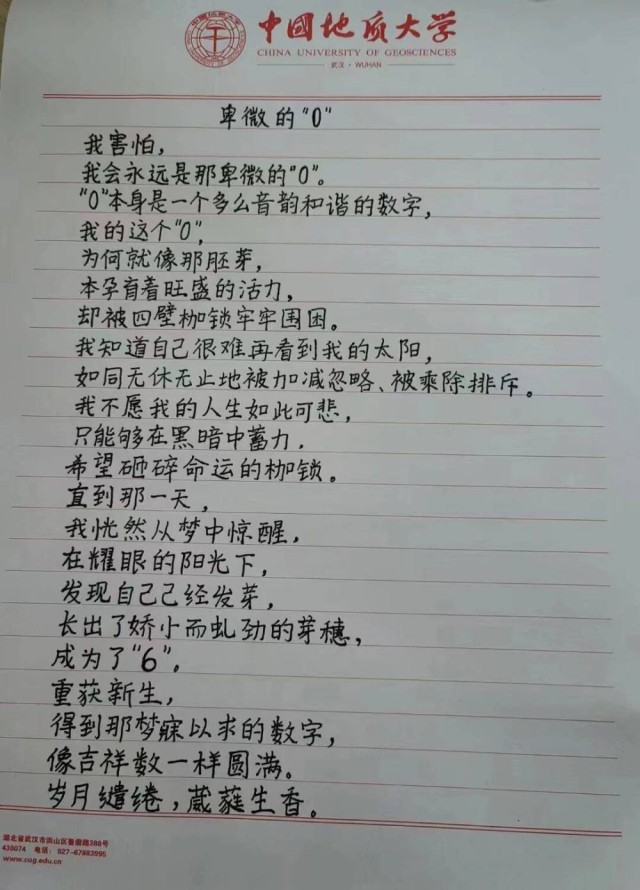 中国地质大学
CHINA UNIVERSITY OF GEOSCIENCES
武汉·WUHAN
卑微的"0"
我害怕，
我会永远是那卑微的"0"。
"0"本身是一个多么音韵和谐的数字，
我的这个"0"，
为何就像那胚芽，
本孕育着旺盛的活力，
却被四壁枷锁牢牢围困。
我知道自己很难再看到我的太阳，
如同无休无止地被加减忽略、被乘除排斥。
我不愿我的人生如此可悲，
只能够在黑暗中蓄力．
希望砸碎命运的枷锁。
直到那一天，
我恍然从梦中惊醒，
在耀眼的阳光下，
发现自己已经发芽，
长出了娇小而虬劲的芽穗，
成为了"6"．
重获新生，
得到那梦寐以求的数字，
像吉祥数一样圆满。
岁月缱绻，葳蕤生香。
湖北省武汉市洪山区鲁磨路388号
430074 电话：027-67883995
www.cug.edu.cn